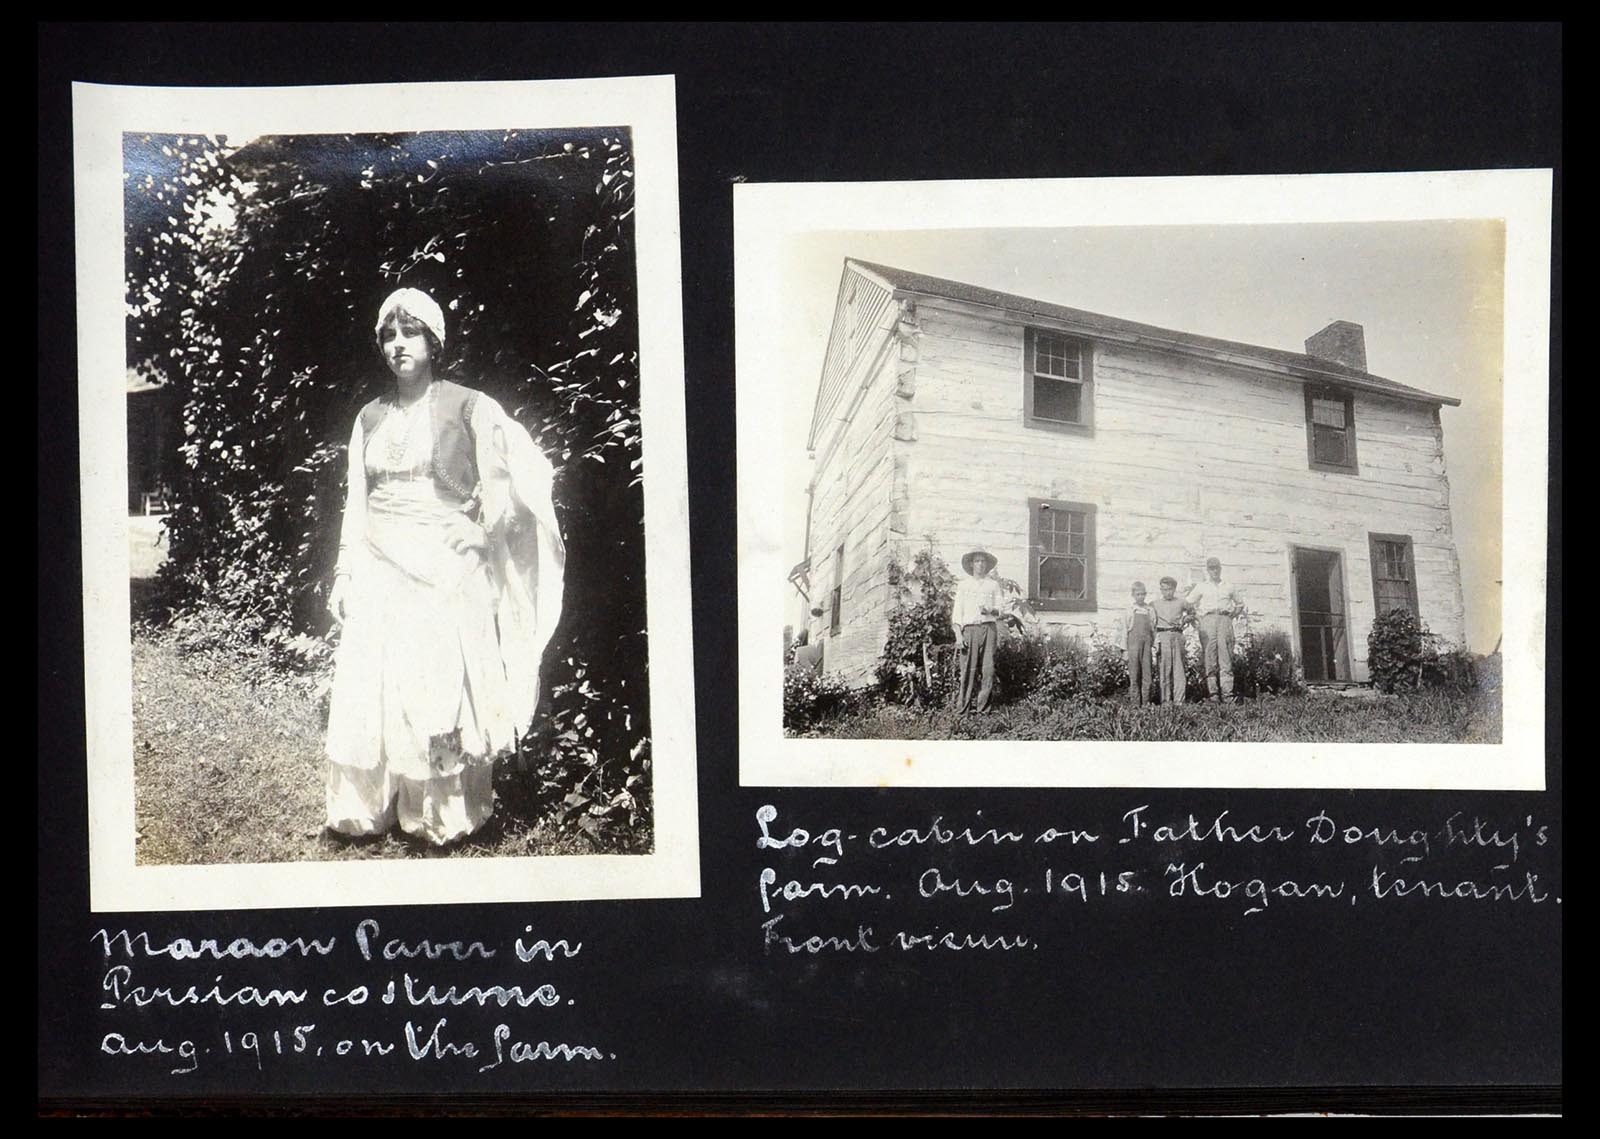 Maraon Paver in
Persian costume.
Aug. 1915, on the farm.
Log-cabin on Father Doughty's
farm. Aug. 1915. Hogan, tenant.
Front view.